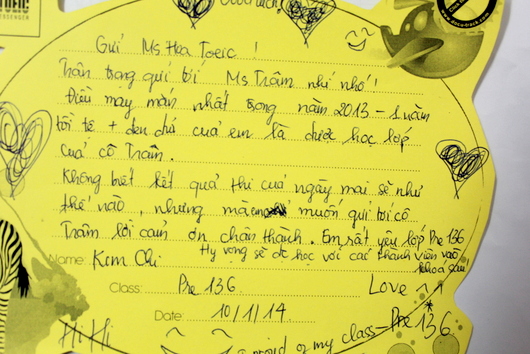 TOEIC
www.docu-track.com
Gửi Ms Hoa Toeic !
Trân trọng gửi tới Ms Trâm nhí nhố!
Điều may mắn nhất trong năm 2013 - 1 năm
tồi tệ + đen đủi của em là được học lớp
của cô Trâm.
Không biết kết quả thi của ngày mai sẽ như
thế nào, nhưng mà muốn gửi tới cô
Trâm lời cảm ơn chân thành. Em rất yêu lớp Pre 136
Hy vọng sẽ đc học với các thành viên vào
khoá sau
Name: Kim Chi
Class: Pre 136
Love ^^
Date: 10/1/14
Hi Hi
proud of my class - Pre 136